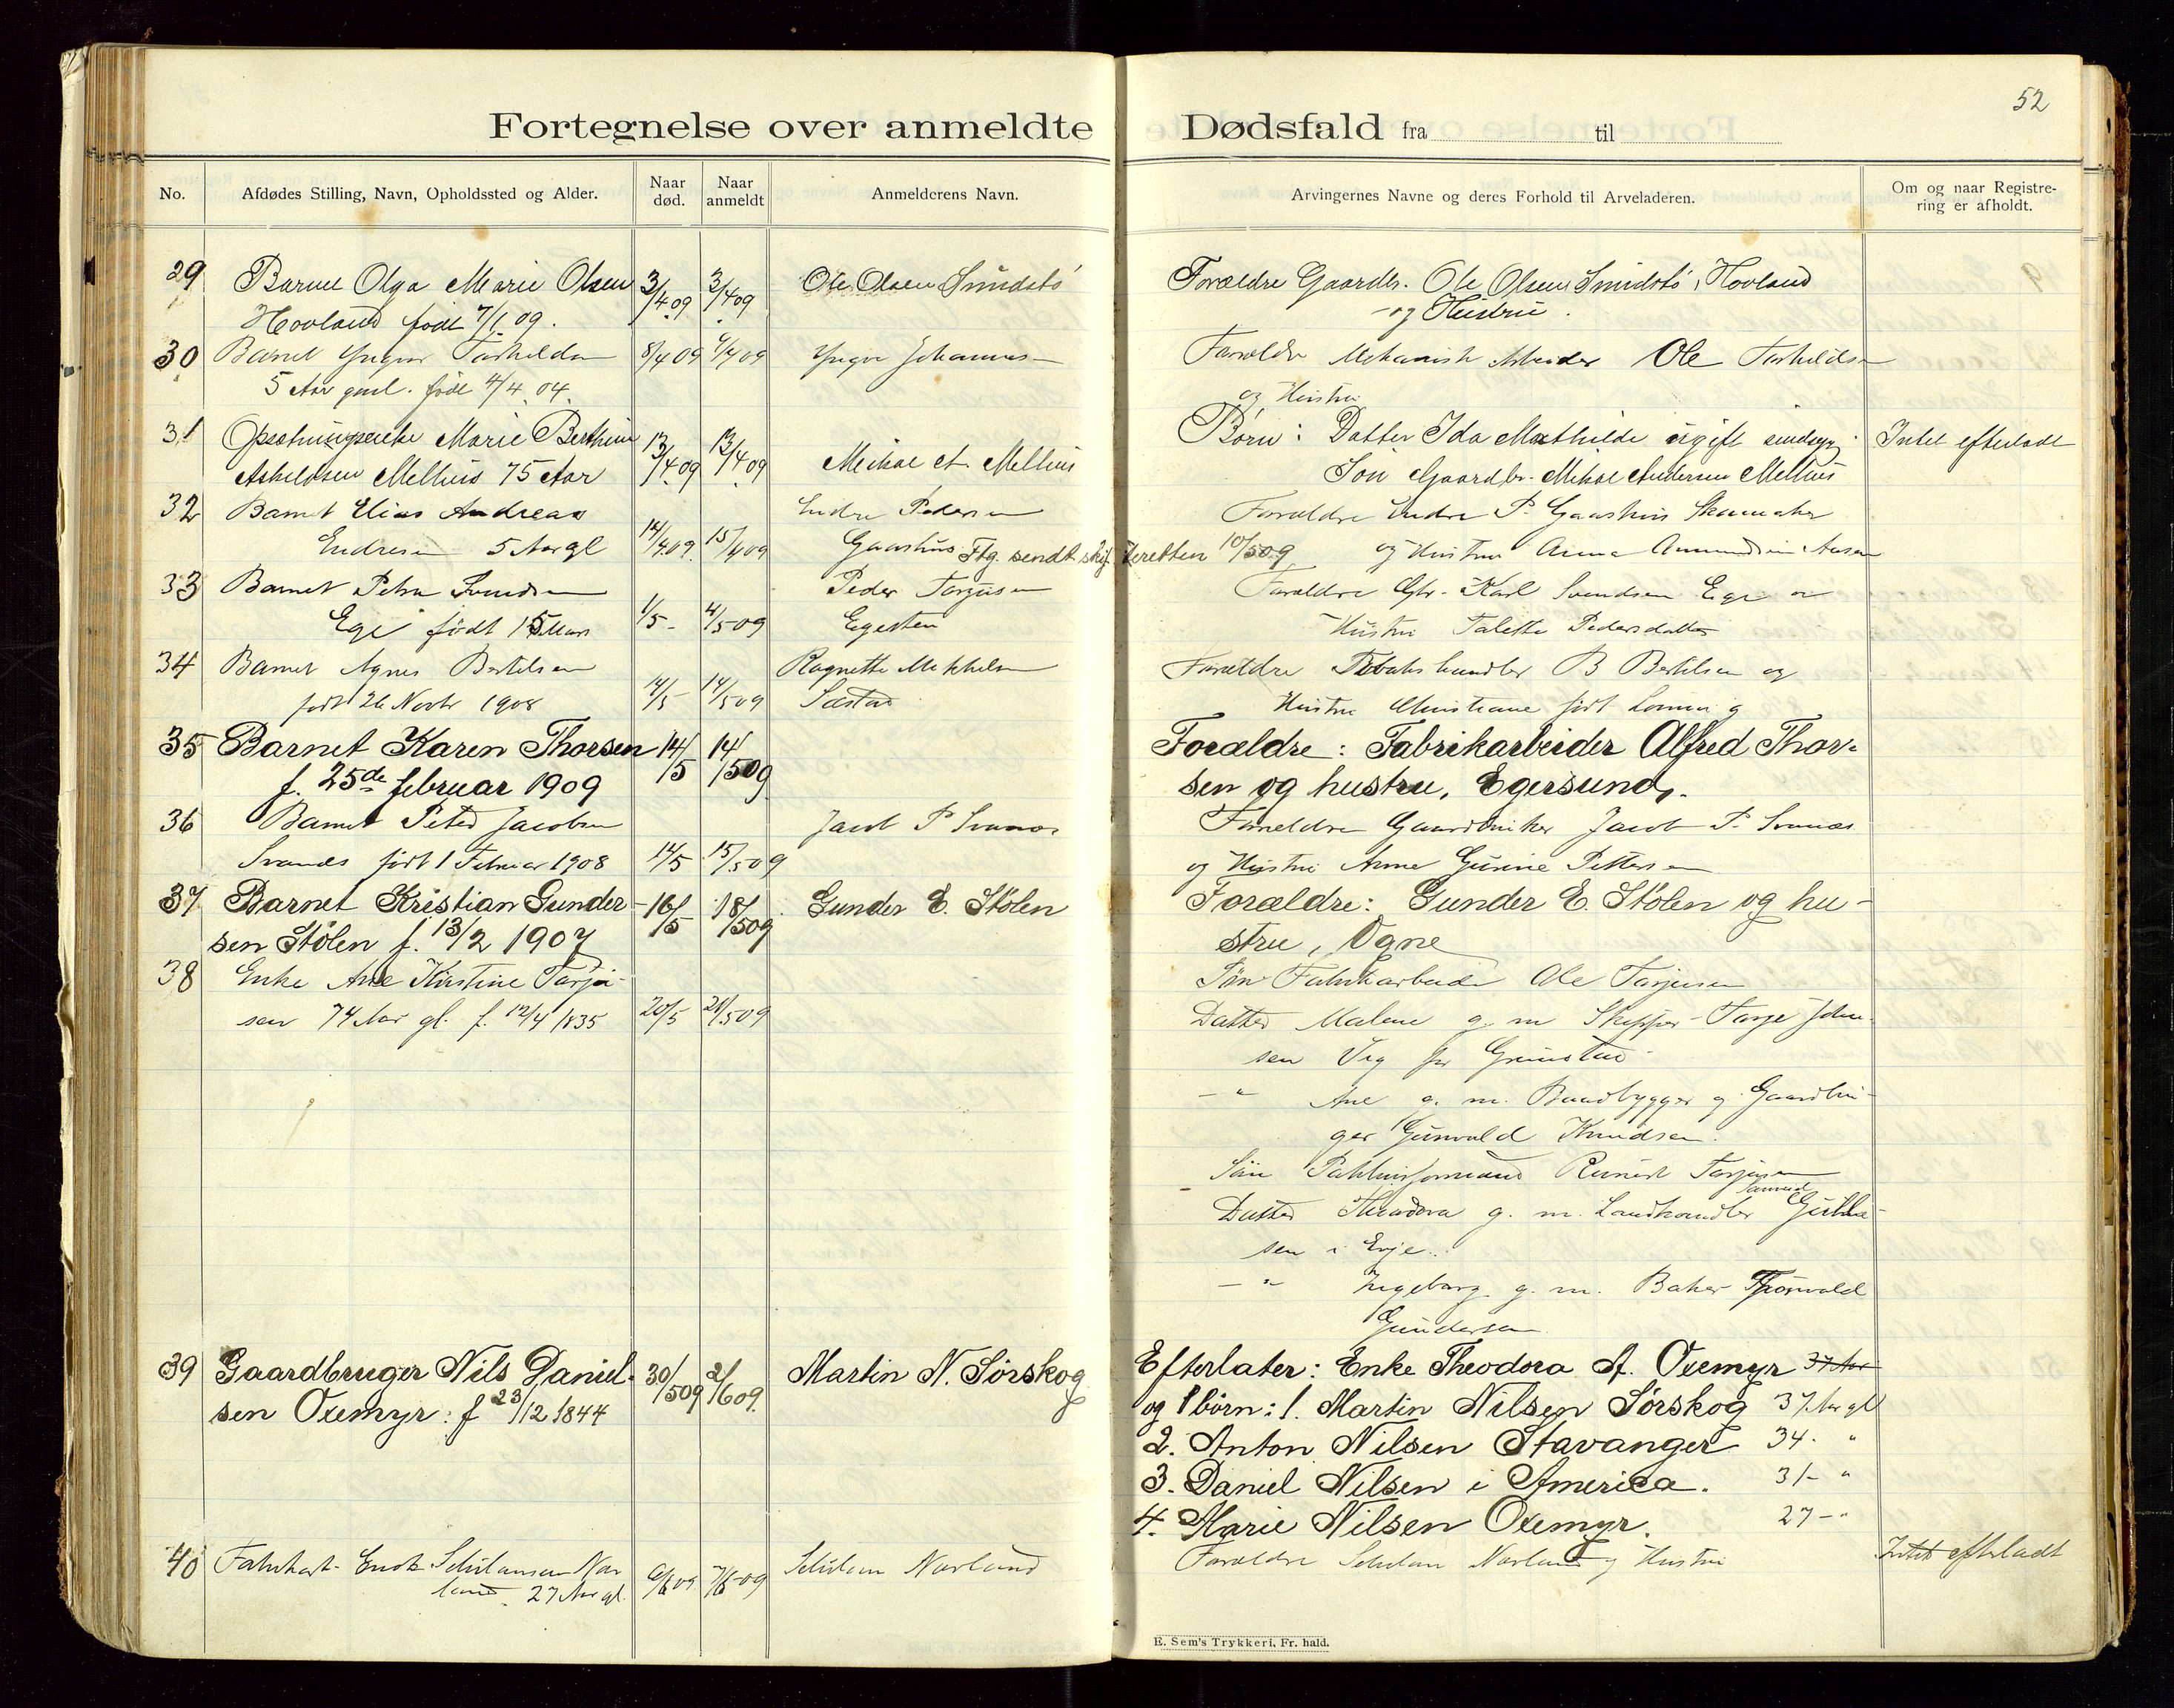 52
Fortegnelse over anmeldte Dødsfald fra til
No.
Afdødes Stilling, Navn, Opholdssted og Alder.
Naar død.
Naar anmeldt
Anmelderens Navn.
Arvingernes Navne og deres Forhold til Arveladeren.
Om og naar Registre-
ring er afholdt.
29 Barnet Olga Marie Olsen 3/4.09 3/4.09 Ole Olsen Smidstö Forældre Gaardbr. Ole Olsen Smidstö, Hovland
Hovland födt 7/1.09. og Hustru.
30 Barnet Yngvar Torkildsen 8/4 09 9/4 09 Yngvar Johannes Forældre Mekanisk Arbeider Ole Torkildsen
5 Aar gml. födt 4/4.04. og Hustru
31 Marie Berthine 13/4.09 13/4.09 Børn: Datter Ida Mathilde ugift sindssyg. Intet efterladt
Askildsen Mellius 75 Aar Mikal A. Mellius Sön Gaardbr. Mikal Andersen Mellius
32 Barnet Elias Andreas Endre Pedersen Forældre Endre P. Gaashus Skomaker
Endresen 5 Aar gl 14/4.09. 15/4 09 Gaashus Ftg. sendt skifteretten 10/5 09 og Hustru Anna
33 Barnet Petra Svendsen Peder Torjusen Forældre Gbr. Karl Svendsen Ege og
Ege født 15 Mars 1/5 - 4/5 09 Egesten Hustru Talette Pedersdatter
34 Barnet Agnes Bertelsen Ragnette Mikkelsen Forældre Tobakshandler B Bertelsen og
født 26 Novbr 1908 14/5 - 14/5 09 Hustru Christiane født
35 Barnet Karen Thorsen 14/5 14/5 09 Forældre: Fabrikarbeider Alfred Thor-
f. 25de februar 1909 sen og hustru, Egersund.
36 Barnet Peter Jacobsen Jacob P Svanes Forældre Gaardbruker Jacob P. Svanes
Svanes født 1 Februar 1908 14/5 15/5 09 og Hustru Anne Gurine Pettersen
37 Barnet Kristian Gunder- 16/5 18/5 09 Gunder E. Stölen Forældre: Gunder E. Stölen og hu-
sen Stölen f. 13/2 1907 stru, Ogne
38 Enke Ane Kirstine Torju- Søn Fabrikarbeider Ole Torjusen
sen 74 Aar gl. f. 12/4 1835 20/5 21/5 09 Datter Malene g. m Skipper Tarje John-
sen Vig pr Grimstad
- " Ane g. m. Baadbygger og Gaardbru-
ger Gunvald Knudsen.
Søn Torjusen
Datter Theodora g. m. Landhandler Samuel
sen i Evje.
- " Ingeborg g. m. Baker Thorvald
Gundersen
39 Gaardbruger Nils Daniel- 30/5 09 2/6 09. Martin N. Sörskog Efterlater: Enke Theodora A. Oxemyr 37 Aar
sen Oxemyr: f 23/12 1844 og børn: 1. Martin Nilsen Sörskog 37 Aar gl
2. Anton Nilsen Stavanger 34. "
3. Daniel Nilsen i America. 31- "
4. Marie Nilsen Oxemyr. 27 - "
40 Fabrikarb. Endre Nor 6/6 09 7/6 09 Norland Forældre Norland og Hustru Intet efterladt
land. 27 Aar gl.
E. Sem's Trykkeri, Fr. hald.